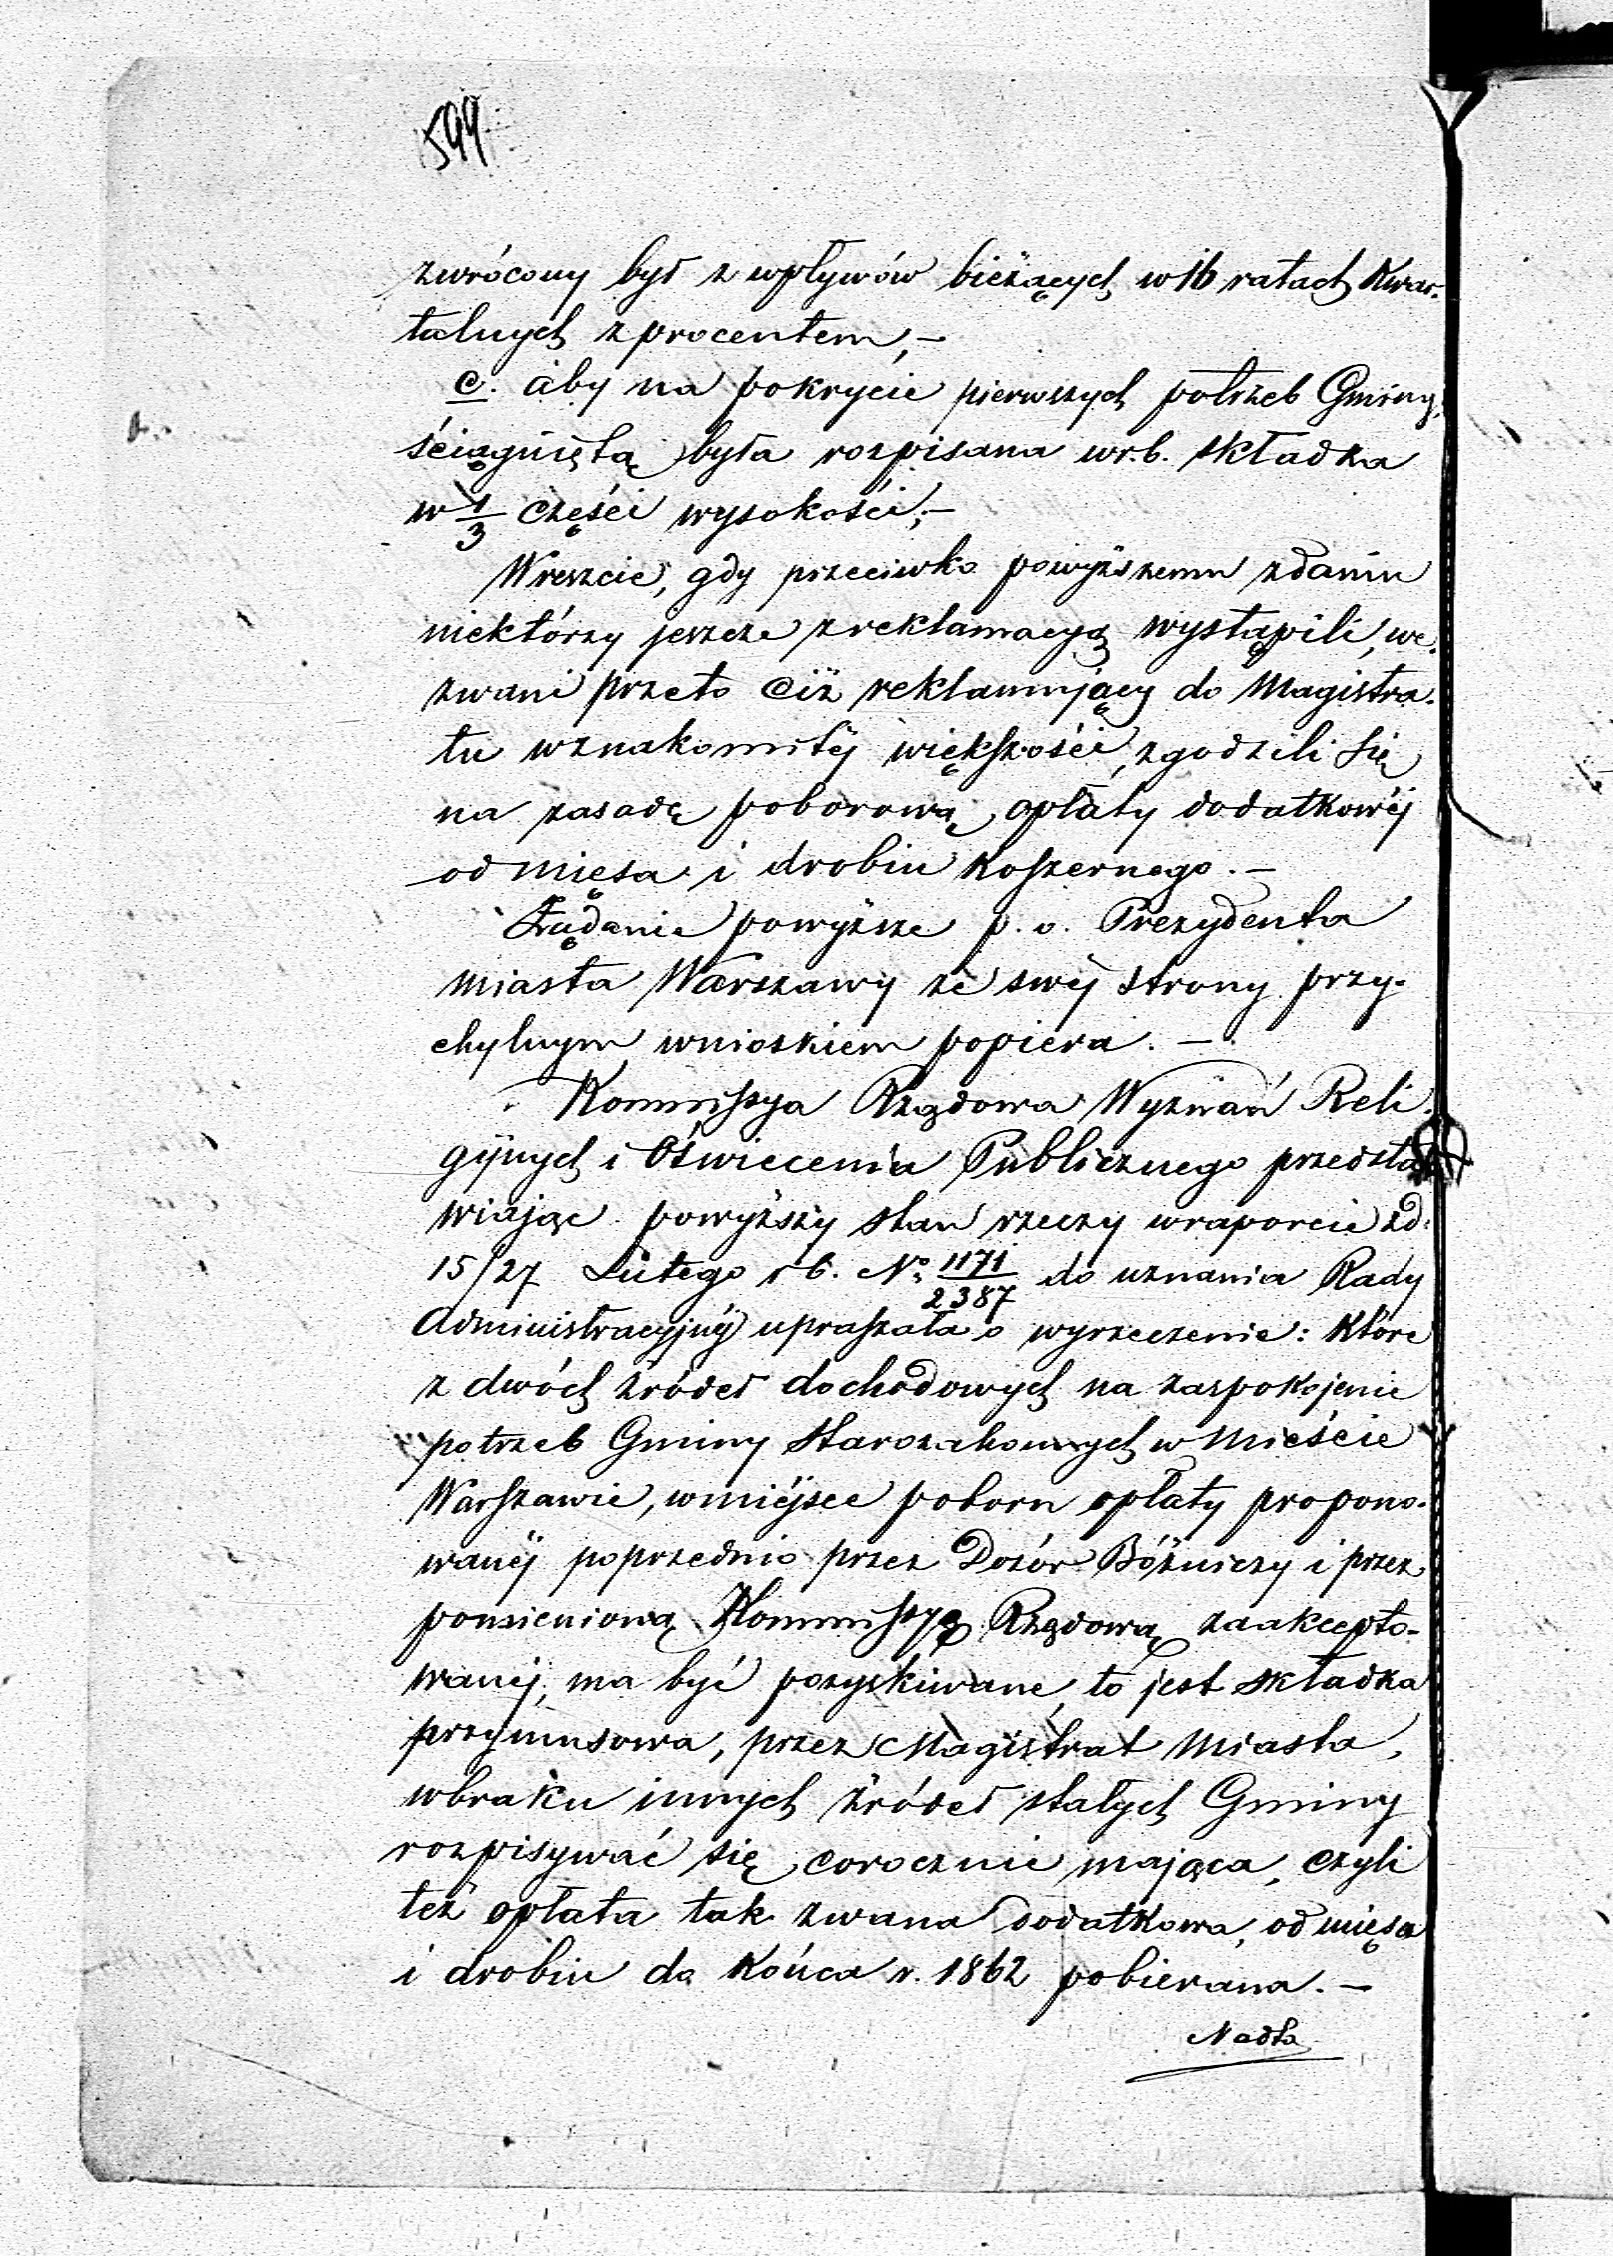 599
zwrócony był z wpływów bieżących w 16 ratach Kwar-
talnych z procentem, —
c. aby na pokrycie pierwszych potrzeb Gminy,
ściągniętą była rozpisana w r. b. składka
w 1/3 części wysokości; —
Wreszcie, gdy przeciwko powyższemu zdaniu
niektórzy jeszcze z reklamacyą wystąpili, we-
zwani przeto ciż reklamujący do Magistra-
tu w znakomitéj większości, zgodzili się
na zasadę poborową opłaty dodatkowéj
od mięsa i drobiu koszernego. —
Żądanie powyższe p. o. Prezydenta
miasta Warszawy ze swéj strony przy-
chylnym wnioskiem popiera. —
Kommissya Rządowa Wyznań Reli-
gijnych i Oświecenia Publicznego przedsta-
wiając powyższy stan rzeczy w raporcie z d.
15/27 Lutego r b. No 1171/2387 do uznania Rady
Administracyjnéj upraszała o wyrzeczenie: które
z dwóch źródeł dochodowych na zaspokojenie
potrzeb Gminy Starozakonnych w Mieście
Warszawie, w miéjsce poboru opłaty propono-
wanéj poprzednio przez Dozór Bóżniczy i przez
pomienioną Kommissyą Rządową zaakcepto-
wanéj, ma być pozyskiwane, to jest składka
przymusowa, przez Magistrat Miasta,
w braku innych źródeł stałych Gminy
rozpisywać się corocznie mająca, czyli
też opłata tak zwana dodatkowa, od mięsa
i drobiu do końca r. 1862 pobierana. —
Nadto